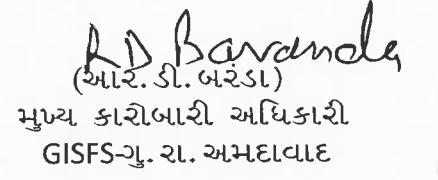 R D Baranda
(આર. ડી. બરંડા)
મુખ્ય કારોબારી અધિકારી
GISFS-ગુ. રા. અમદાવાદ